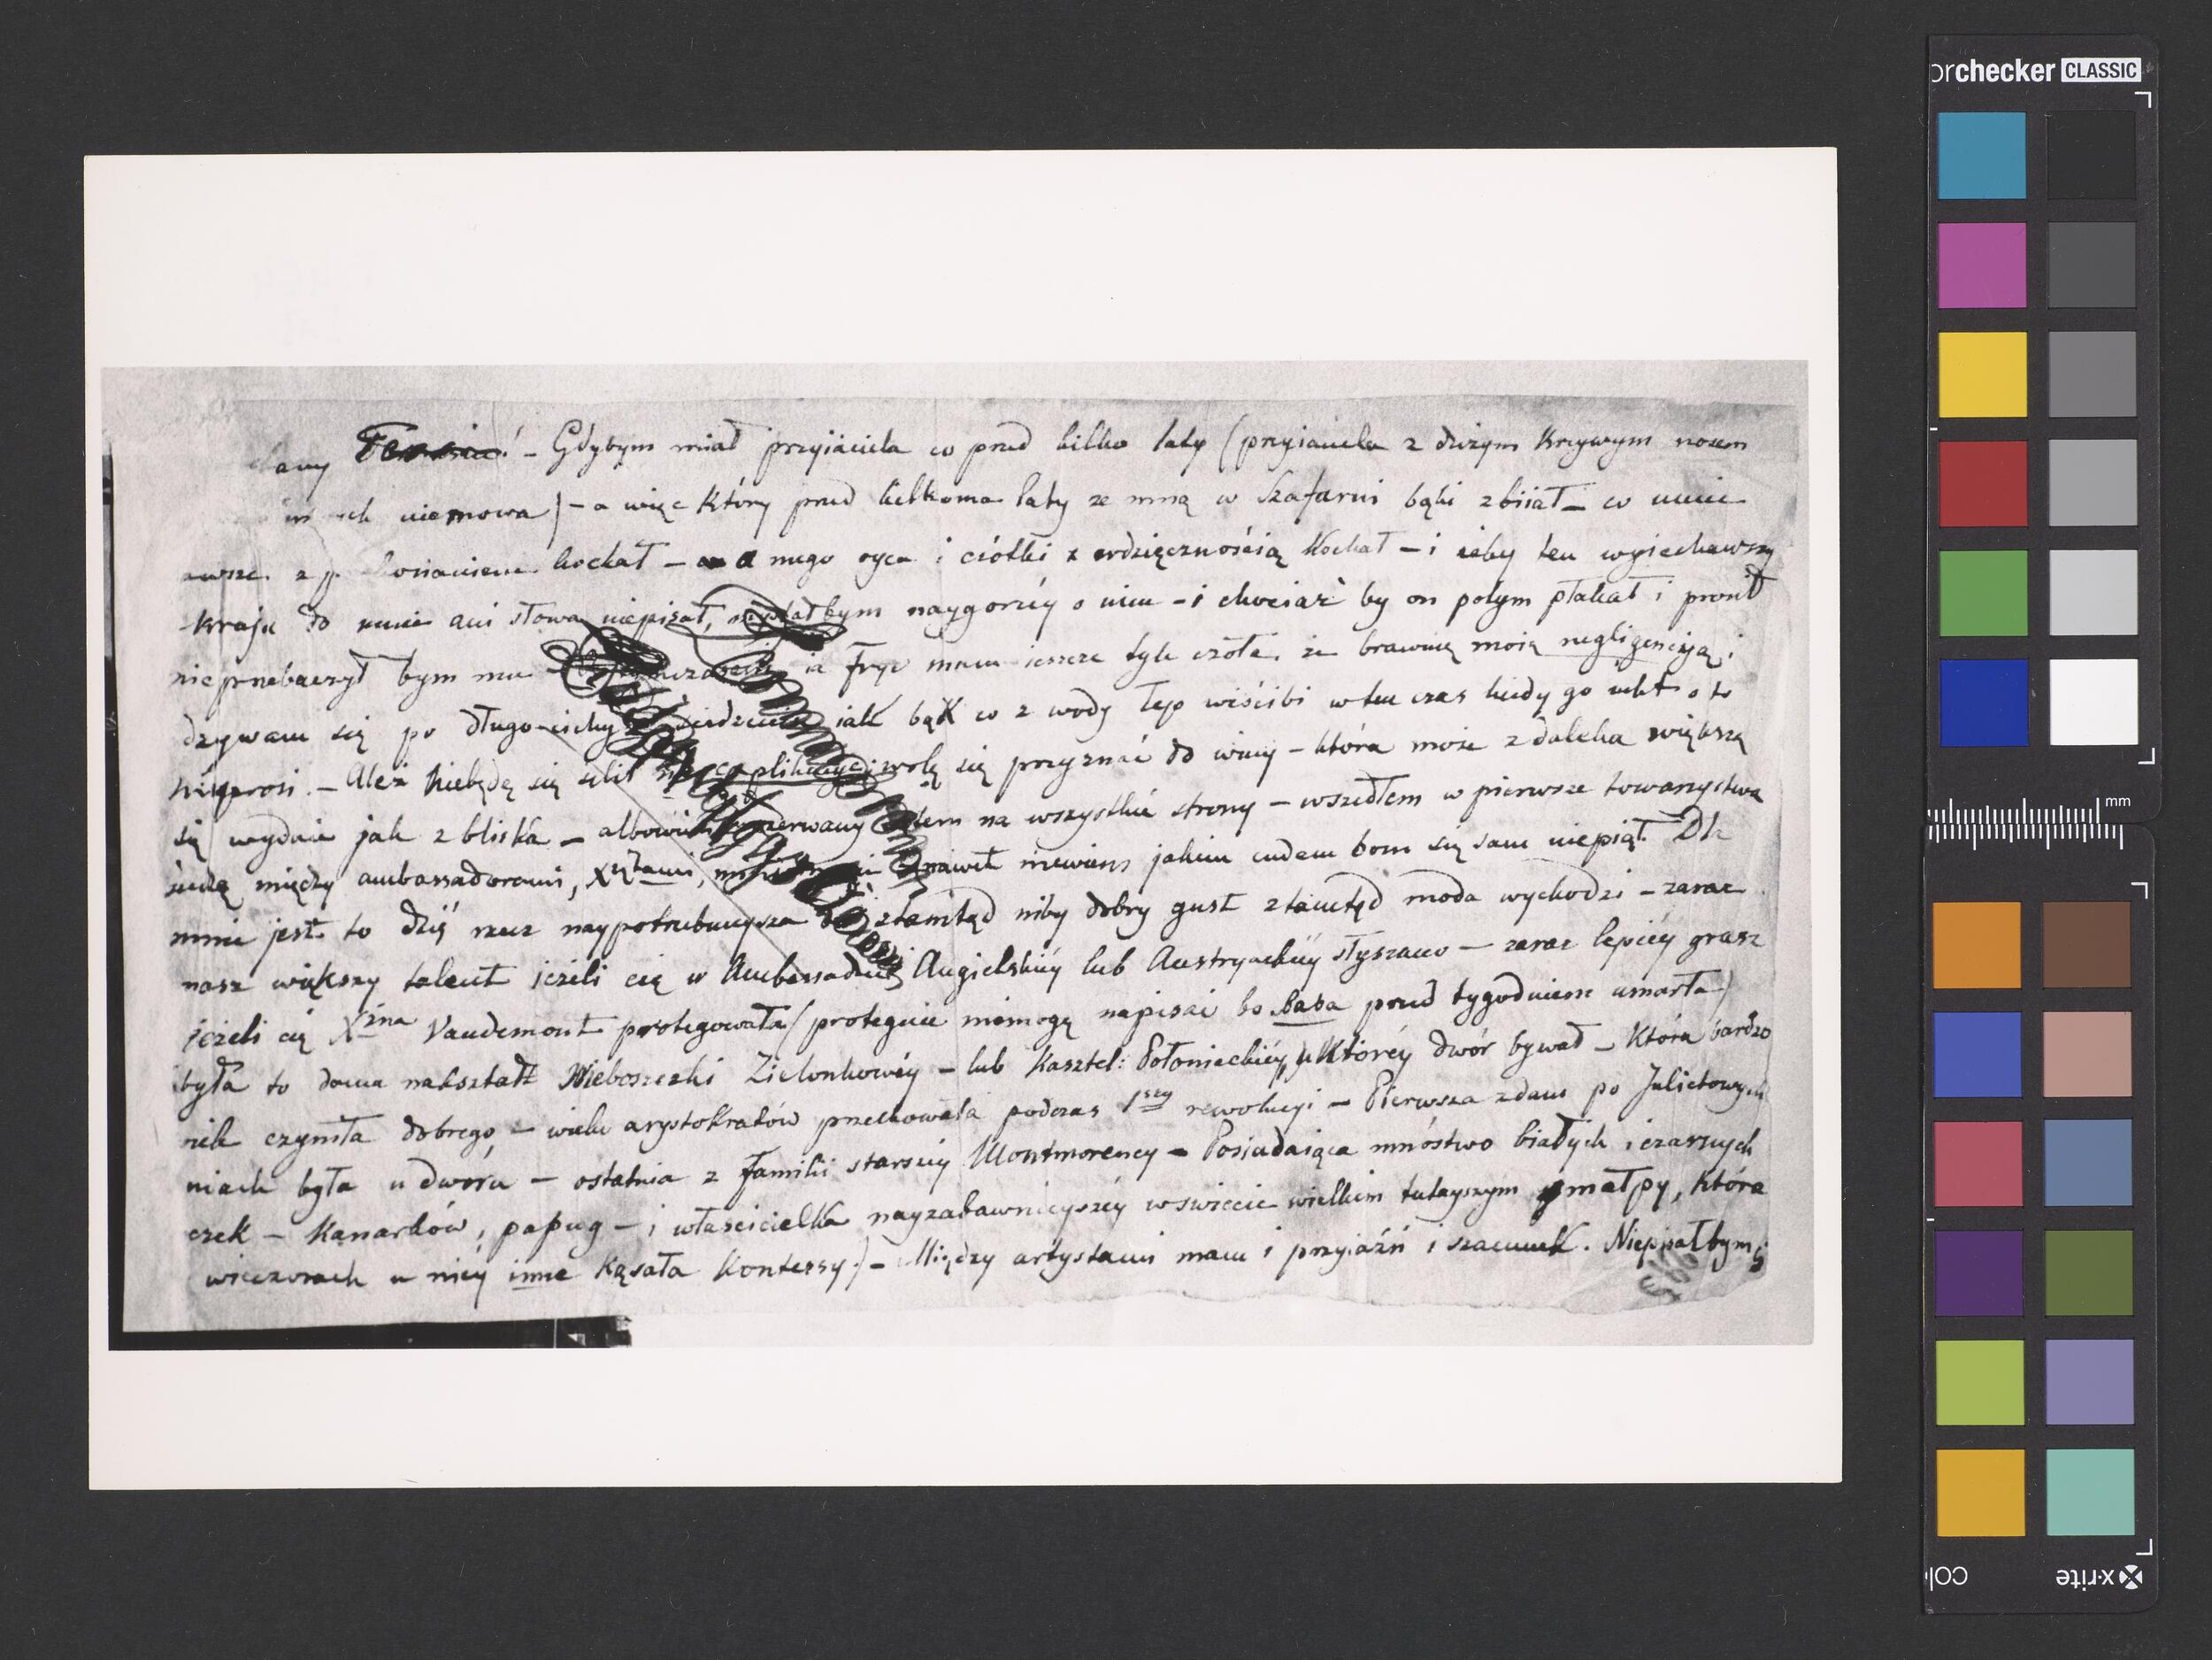 orchecker CLASSIC
any ! – Gdybym miał przyiaciela co przed kilko laty (przyiaciela z dużym krzywym nosem
niemowa) – a więc który przed kilkoma laty ze mną w Szafarni bąki zbiiał – co mnie
z p. kochał – a mego oyca i ciótki z wdzięcznośćią kochał – i żeby ten wyiechawszy
kraju do mnie ani słowa niepisał, myślałbym naygorzéy o nim – i chociaż by on potym płakał i prosił
nieprzebaczył bym mu ia Fryc mam ieszcze tyle czoła, że brawuię moią negligencyją, i
dzywam się po długo cichym siedzeniu iak bąk co z wody łep wiścibi w ten czas kiedy go nikt o to
nieprosi. – Ależ niebędę się silił na explikacye; wolę się przyznać do winy – która może z daleka większą
się wydaie jak z bliska – albowiem rozerwany iestem na wszystkie strony – wszedłem w pierwsze towarzystwa
siedzę między ambassadorami, Xżętami, ministrami a nawet niewiem jakim cudem bom się sam niepiął. Dla
mnie jest to dziś rzecz naypotrzebnieysza bo ztamtąd niby dobry gust ztamtąd moda wychodzi – zaraz
masz większy talent jeżeli cię w Ambassadzie Angielskiéy lub Austryackiéy słyszano – zaraz lepiéy grasz
jeżeli cię Xżna Vaudemont protegowała (proteguie niemogę napisać bo baba przed tygodniem umarła)
była to dama nakształt Nieboszczki Zielonkowéy – lub Kasztel: Połonieckiéy, u któréy dwór bywał – która bardzo
wiele czyniła dobrego – wielu arystokratów przechowała podczas 1széy rewolucyi – Pierwsza z dam po Julietowych
niach była u dworu – ostatnia z familii starszéy Montmorency – Posiadaiąca mnóstwo białych i czarnych
czek – Kanarków, papug – i właścicielka nayzabawnieyszéy w swiecie wielkim tutayszym małpy, która
wieczorach u niéy inne kąsała Kontessy.) – Między artystami mam i przyiaźń i szacunek. Niepisałbym
mm
x·rite
colo